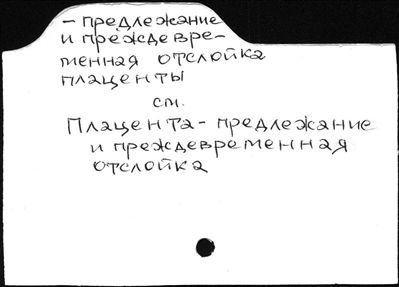 - предлежание
и преждевре-
менная отслойка
плаценты
см.
Плацента - предлежание
и преждевременная
отслойка